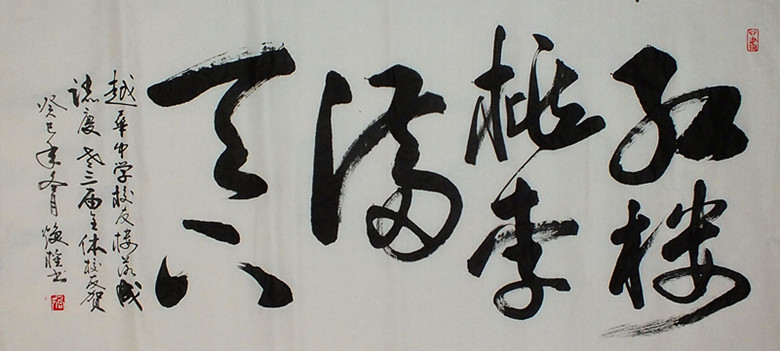 红楼
桃李
满
天下
越华中学校友楼落成
誌慶 老三届全体校友贺
癸巳年冬月 书